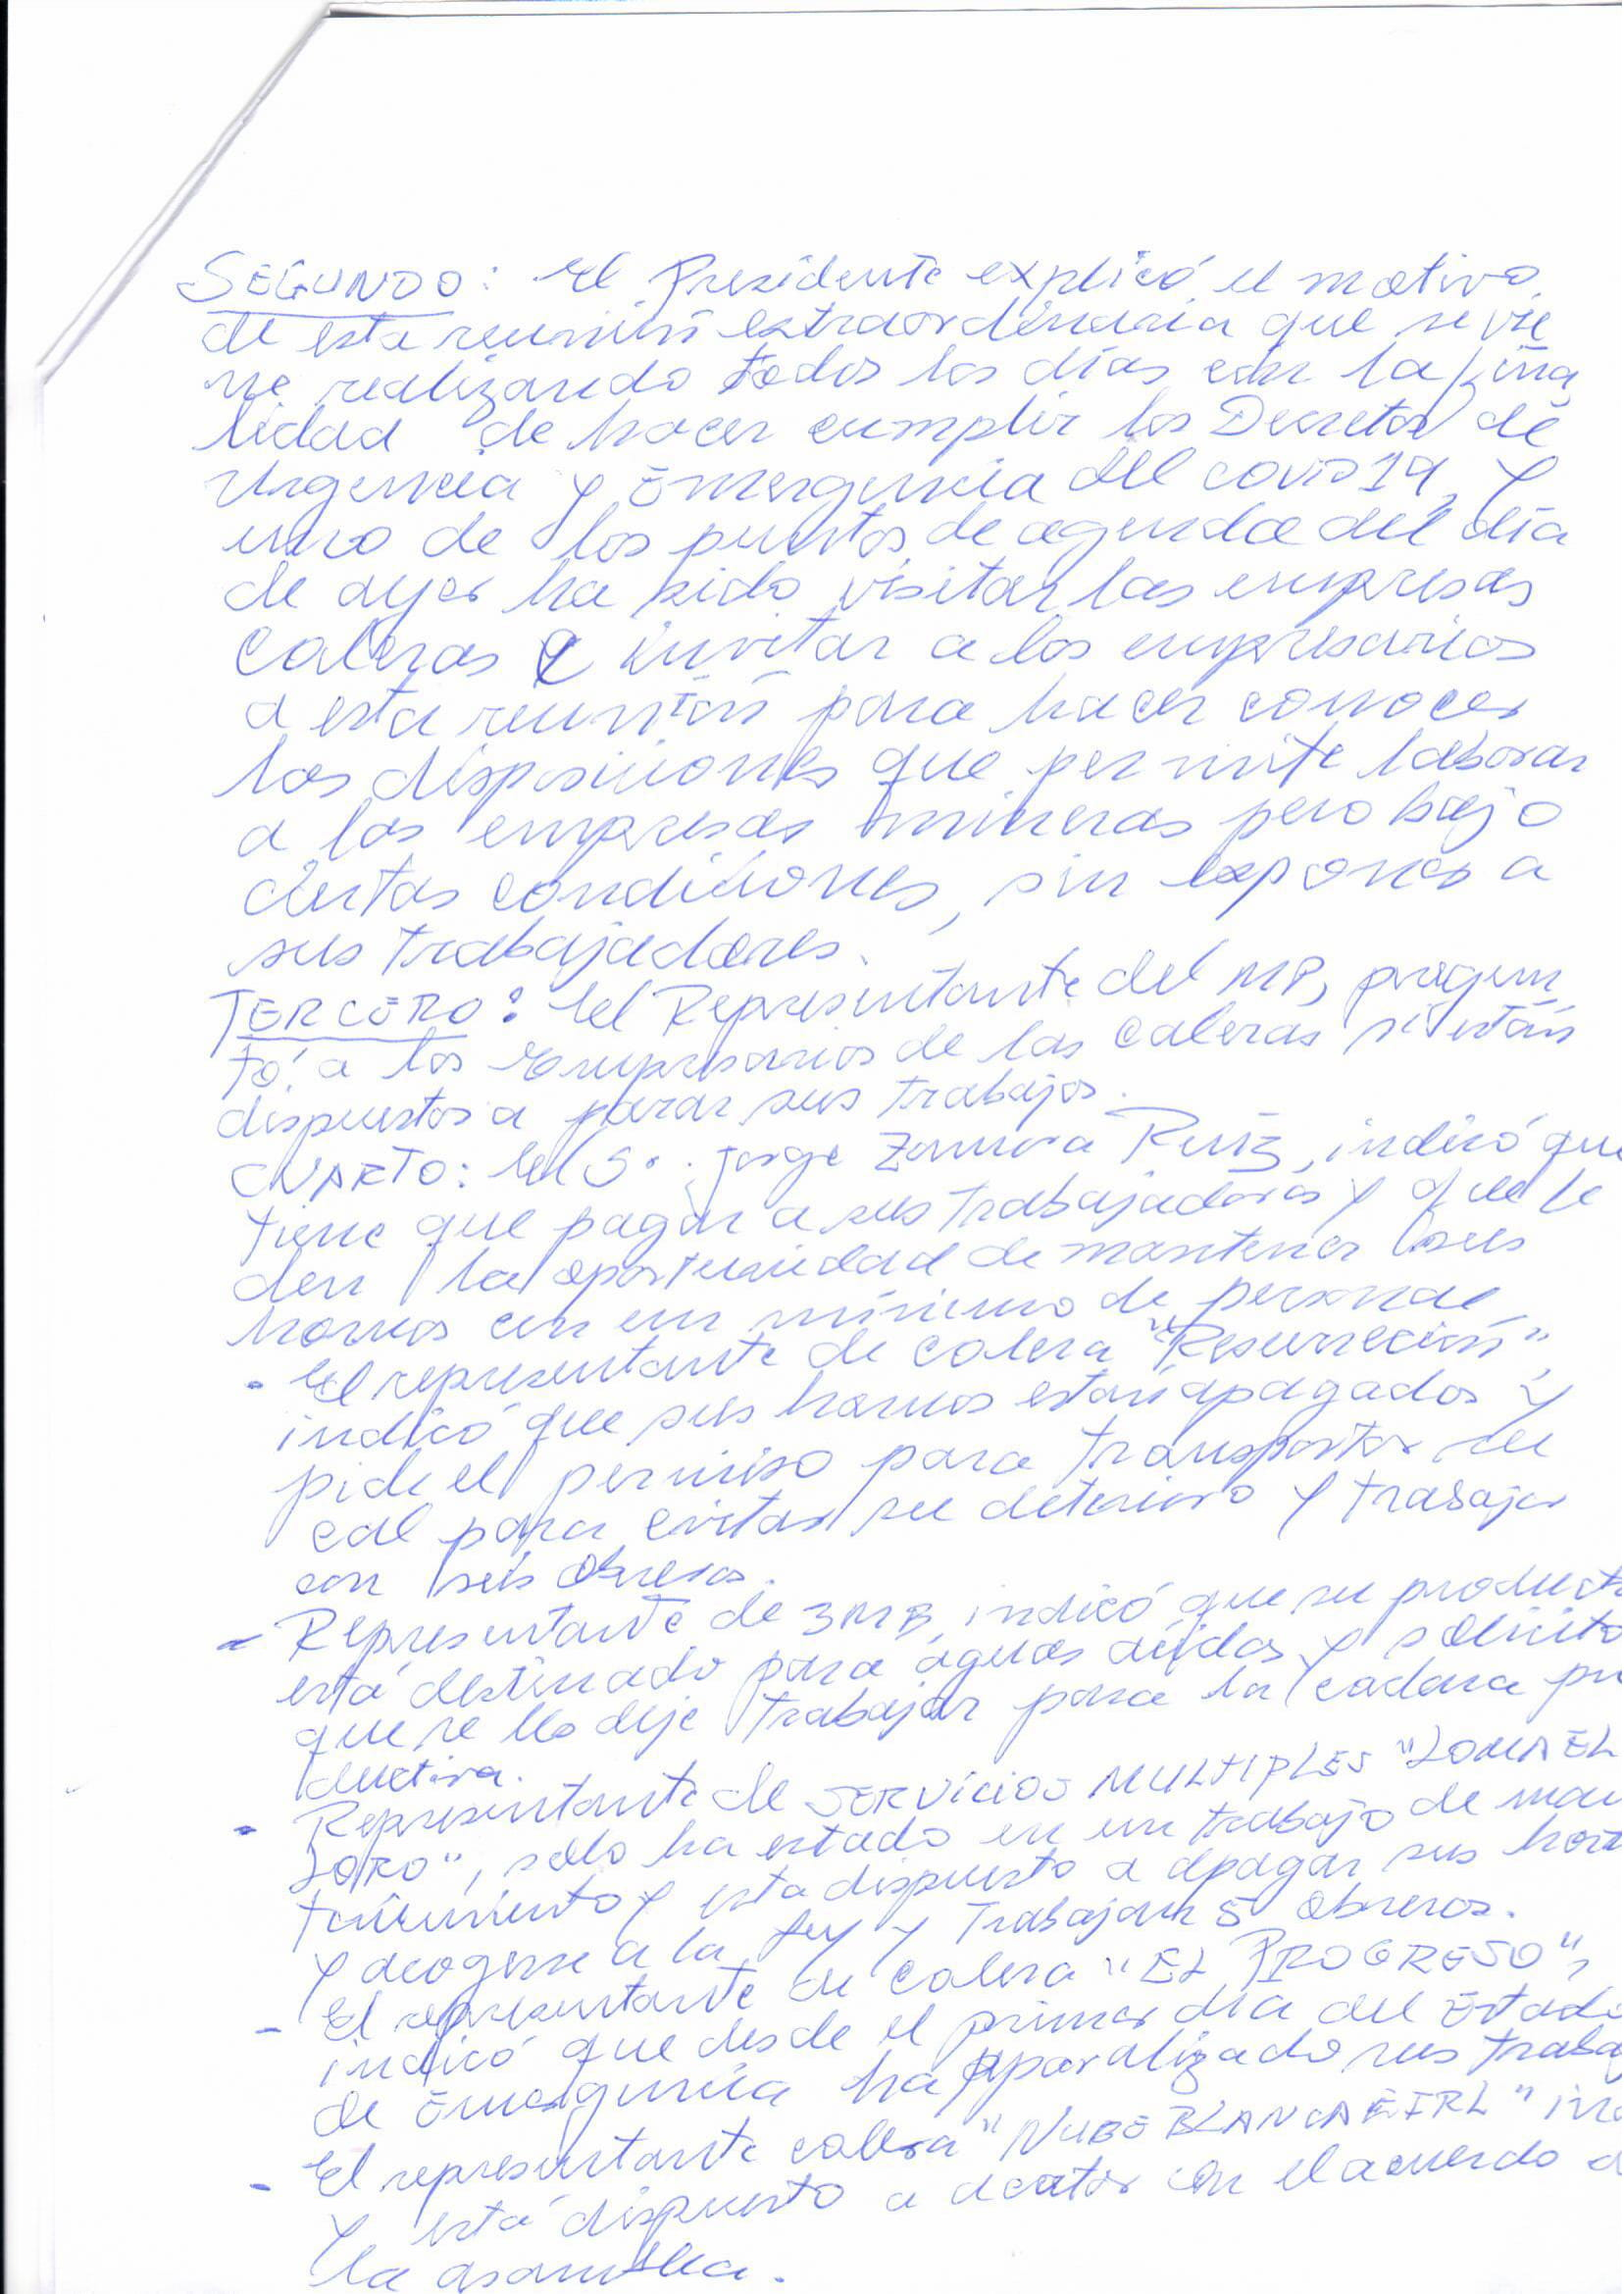 SEGUNDO: El Presidente explicó el motivo
de esta reunión extraordinaria que se vie
ne realizando todos los días con la fina
lidad de hacer cumplir los Decretos de
Urgencia y Emergencia del covid 19, y
uno de los puntos de agenda del día
de ayer ha sido visitar las empresas
Caleras e invitar a los empresarios
a esta reunión para hacer conocer
las disposiciones que permite laborar
a las empresas mineras pero bajo
ciertas condiciones, sin exponer a
sus trabajadores.
TERCERO: El Representante del MP, pregun
tó a los Empresarios de las Caleras si están
dispuestos a parar sus trabajos.
CUARTO: El Sr. Jorge Zamora Ruiz, indicó que
tiene que pagar a sus trabajadores y que le
den la oportunidad de mantener sus
hornos con un mínimo de personal
- El representante de calera "Resurrección",
indicó que sus hornos están apagados y
pide el permiso para transportar su
cal para evitar su deterioro y trabajar
con seis obreros.
- Representante de 3MB, indicó que su product
está destinado para aguas acidas y solicito
que se le deje trabajar para la cadena pro
ductiva.
- Representante de SERVICIOS MULTIPLES "LOMA EL
LORO", solo ha estado en un trabajo de man
tenimiento y esta dispuesto a apagar sus horn
y acogerse a la ley y Trabajar 5 obreros.
- El representante de calera "EL PROGRESO",
indicó que desde el primer día del Estado
de Emergencia ha paralizado sus traba
- El representante calera "NUBE BLANCA EIRL" ind
y está dispuesto a acatar con el acuerdo d
la asamblea.